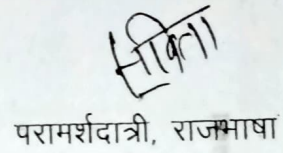 परामर्शदात्री, राजभाषा